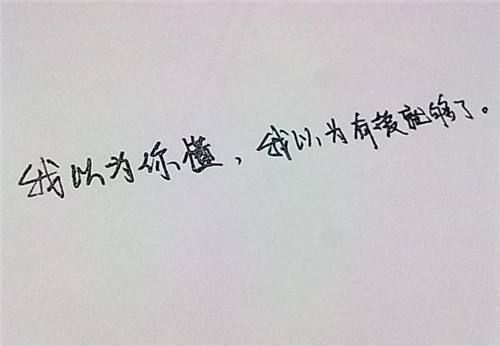 我以为你懂，我以为有我就够了。